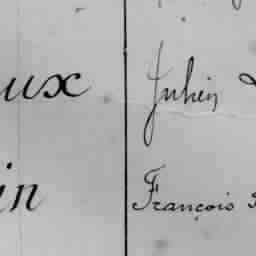 ux Julien
in François